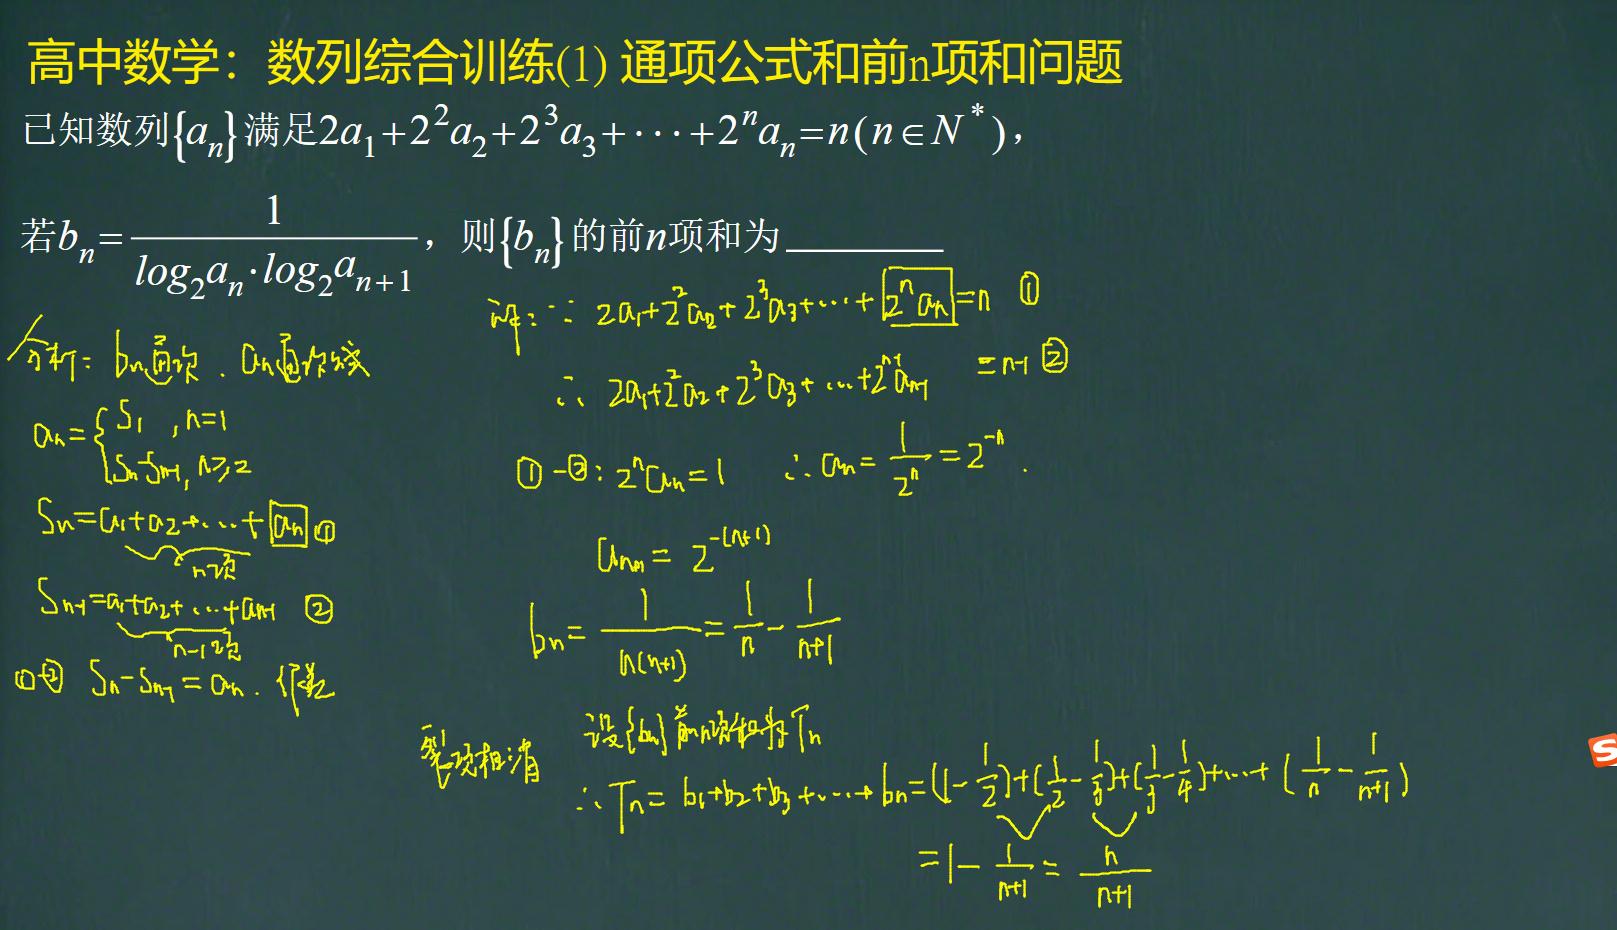 高中数学：数列综合训练(1) 通项公式和前n项和问题
已知数列{aₙ}满足2a₁+2²a₂+2³a₃+···+2ⁿaₙ=n(n∈N*)，
若bₙ=1/(log₂aₙ·log₂aₙ₊₁)，则{bₙ}的前n项和为________
分析：bₙ通项．aₙ通项公式
aₙ={S₁ ,n=1
Sₙ-Sₙ₋₁, n≥2
Sₙ=a₁+a₂+···+aₙ ①
n项
Sₙ₋₁=a₁+a₂+···+aₙ₋₁ ②
n-1项
①-② Sₙ-Sₙ₋₁=aₙ. 作差
解：∵ 2a₁+2²a₂+2³a₃+···+2ⁿaₙ=n ①
∴ 2a₁+2²a₂+2³a₃+···+2ⁿ⁻¹aₙ₋₁ =n-1 ②
①-②: 2ⁿaₙ=1 ∴ aₙ=1/2ⁿ=2⁻ⁿ.
aₙ₊₁=2⁻⁽ⁿ⁺¹⁾
bₙ=1/(n(n+1))=1/n-1/(n+1)
裂项相消
设{bₙ}前n项和为Tₙ
∴Tₙ=b₁+b₂+b₃+···+bₙ=(1-1/2)+(1/2-1/3)+(1/3-1/4)+···+(1/n-1/(n+1))
=1-1/(n+1)=n/(n+1)
S